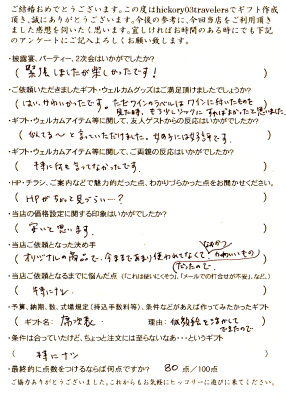 ご結婚おめでとうございます。この度はhickory03travelersでギフト作成
頂き、誠にありがとうございます。今後の参考に、今回当店をご利用頂き
ました感想を伺いたく思います。宜しければお時間のある時にでも下記
のアンケートにご記入よろしくお願い致します。
・披露宴、パーティー、2次会はいかがでしたか?
( 緊張しましたが楽しかったです! )
・ご依頼いただきましたギフト・ウェルカムグッズはご満足頂けましたでしょうか?
( はい、かわいかったです。ただワインのラベルはワインに付いたものを
見た時、もう少しシックにすればよかったと思いました。 )
・ギフト・ウェルカムアイテム等に関して、友人ゲストからの反応はいかがでしたか?
( 似てる〜と言っていただけました。女の子には好評です。 )
・ギフト・ウェルカムアイテム等に関して、ご両親の反応はいかがでしたか?
( 特に何も言ってなかったです。 )
・HP・チラシ、ご案内などで魅力的だった点、わかりづらかった点をお聞かせください。
( HPがちょっと見づらい…? )
・当店の価格設定に関する印象はいかがでしたか?
( 安いと思います。 )
・当店ご依頼となった決め手
( オリジナルの商品で、今まであまり使われてなくて、なおかつかわいいもの
だったので。 )
・当店ご依頼となるまでに悩んだ点(「これは使いにくそう」、「メールでの打合せが不安」、など)
( 特にナシ )
・予算、納期、数、式場規定(持込手数料等)、条件などがあえば作ってみたかったギフト
( ギフト名: 席次表 理由: 似顔絵を活かして
できたので )
・条件は合っていたけど、ちょっと注文には至らないなあ・・・というギフト
( 特にナシ )
・最終的に点数をつけるならば何点ですか? 80 点/100点
ご協力ありがとうございました。これからもお気軽にヒッコリーに遊びに来てください。